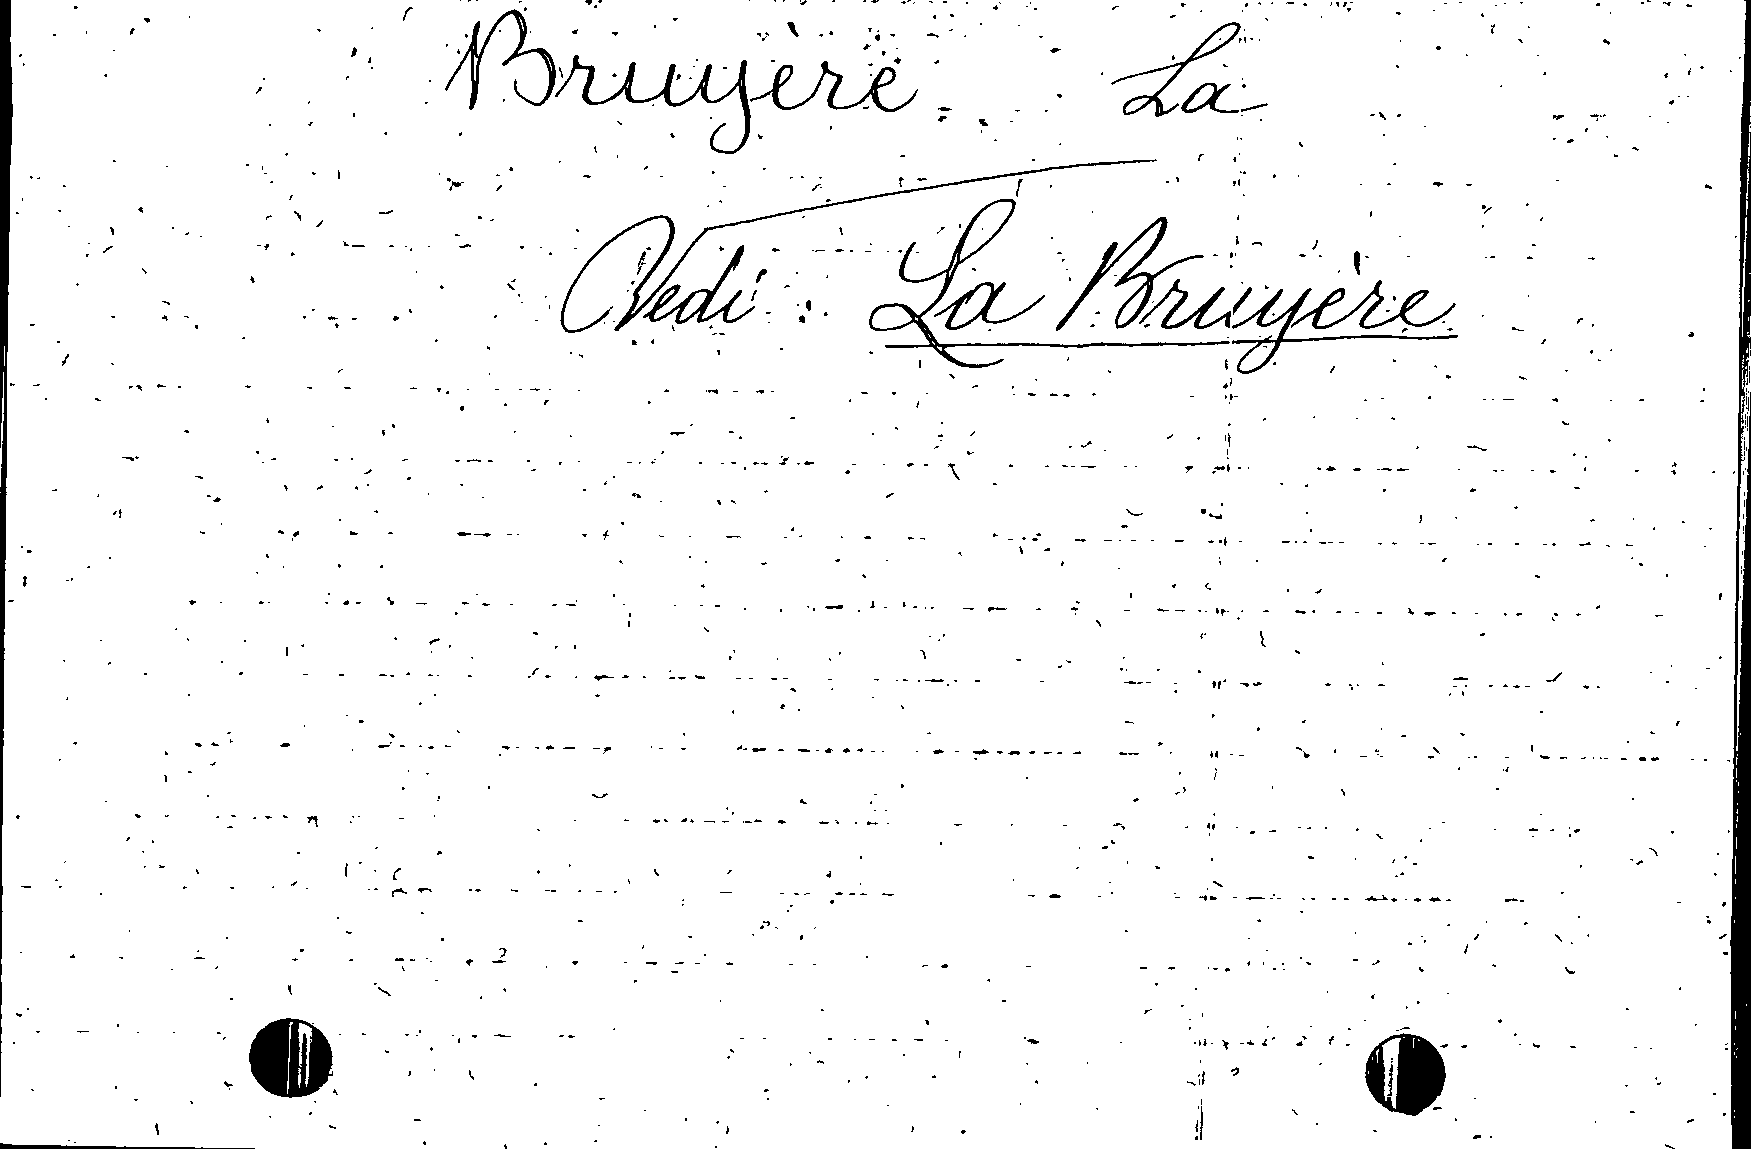 Bruyère La
Vedi: La Bruyère